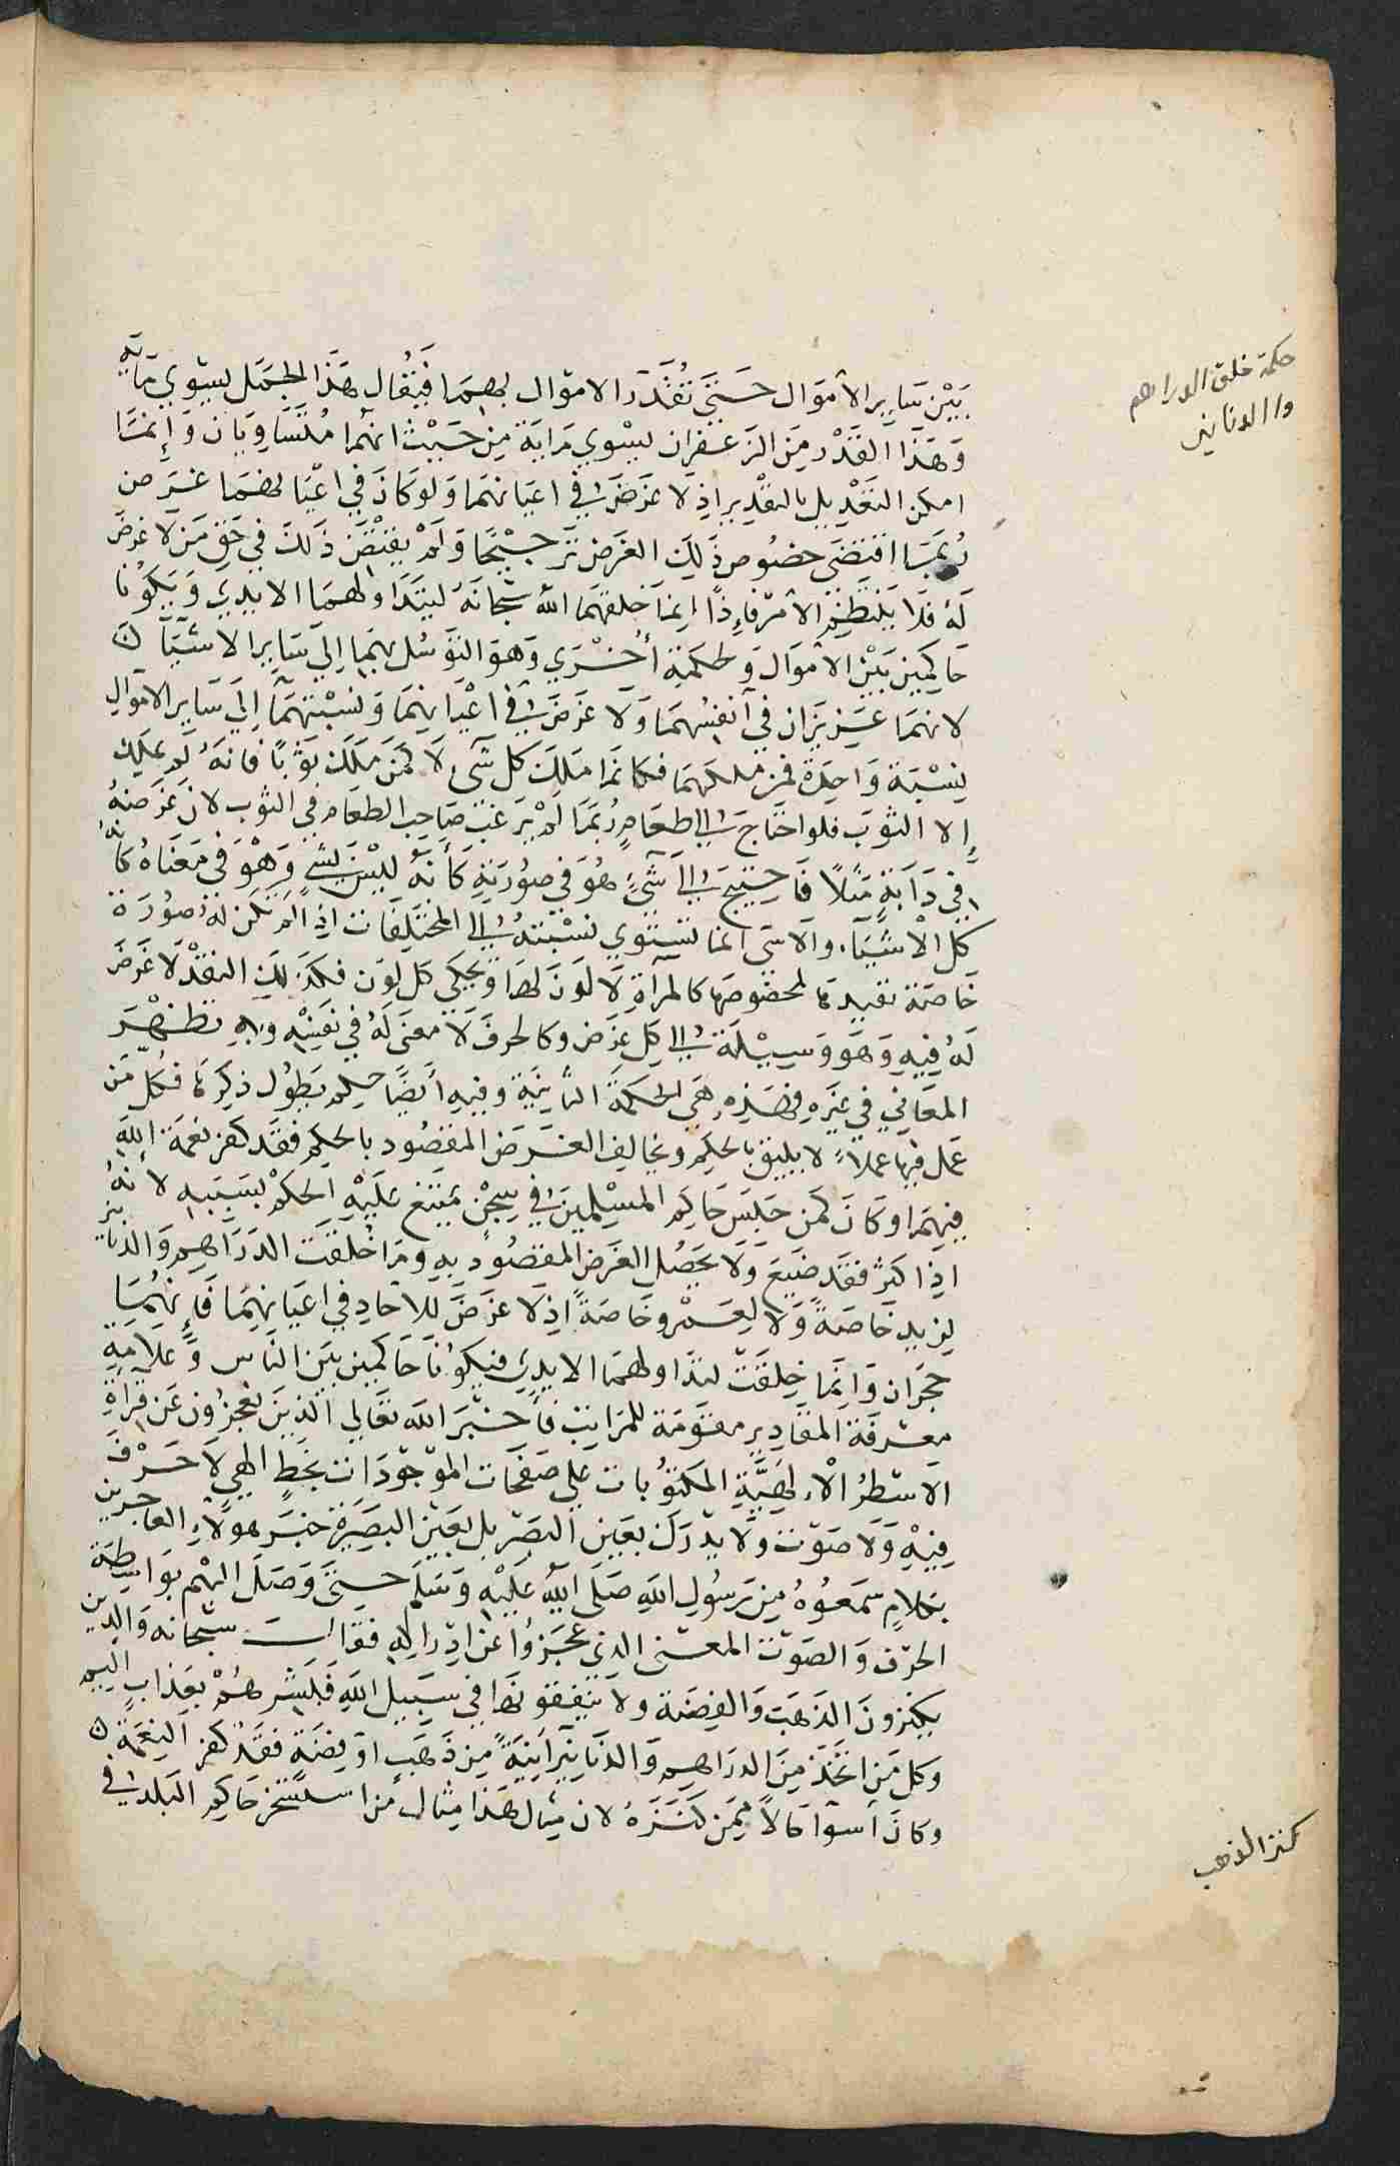 حكمة خلق الدراهم
والدنانير
بين ساير الاموال حتى تقدر الاموال بهما فيقال هذا الجمل يسوي ماية
وهذا القدر من الزعفران يسوي ماية من حيث انهما متساويان وإنما
امكن التعديل بالنقدين اذ لا غرض في اعيانهما ولو كان في اعيانهما غرض
ربما اقتضى خصوص ذلك الغرض ترجيحا ولم يقتض ذلك في حق من لا غرض
له فلا ينتظم الأمر فإذا إنما خلقهما الله سبحانه ليتداولهما الايدي ويكونا
حاكمين بين الأموال ولحكمة أخرى وهو التوسل بهما إلي ساير الاشيآ
لانهما عزيزان في أنفسهما ولا غرض في اعيانهما ونسبتهما إلي ساير الاموال
نسبة واحدة فمن ملكهما فكانما ملك كل شي لا كمن ملك ثوبا فانه لم يملك
إلا الثوب فلو احتاج إلى طعام ربما لم يرغب صاحب الطعام في الثوب لان غرضه
في دابة مثلا فاحتيج إلى شيء هو في صورته كأنه ليس بشي وهو في معناه كأنه
كل الأشياء والاشى انما تستوي نسبته إلى المختلفات اذا لم تكن له صورة
خاصة تفيدها بخصوصها كالمرآة لا لون لها وتحكي كل لون فكذلك النقد لا غرض
له فيه وهو وسيلة إلى كل غرض وكالحرف لا معنى له في نفسه وبه تظهر
المعاني في غيره فهذه هي الحكمة الثانية وفيه أيضا حكم يطول ذكرها فكل من
عمل فيها عملا لا يليق بالحكم ويخالف الغرض المقصود بالحكم فقد كفر نعمة الله
فيهما وكان كمن حبس حاكم المسلمين في سجن يمتنع عليه الحكم بسببه لانه
اذا كنز فقد ضيع ولا يحصل الغرض المقصود به وما خلقت الدراهم والدنانير
لزيد خاصة ولا لعمرو خاصة اذ لا غرض للاحاد في اعيانهما فإنهما
حجران وانما خلقت لتداولهما الايدي فيكونا حاكمين بين الناس وعلامة
معرفة المقادير مقومة للمراتب فأخبر الله تعالي الذين يعجزون عن قرأة
الاسطر الإلهية المكتوبات علي صفحات الموجودات بخط الهي لا حرف
فيه ولا صوت ولا يدرك بعين البصر بل بعين البصيرة خبر هولاء العاجزين
بكلام سمعوه من رسول الله صلى الله عليه وسلم حتى وصل اليهم بواسطة
الحرف والصوت المعنى الذي عجزوا عن ادراكه فقال سبحانه والذين
يكنزون الذهب والفضة ولا ينفقونها في سبيل الله فبشرهم بعذاب اليم
وكل من اتخذ من الدراهم والدنانير آنية من ذهب أو فضة فقد كفر النعمة
وكان أسوأ حالا ممن كنزه لان مثال هذا مثال من استسخر حاكم البلد في
كنز الذهب